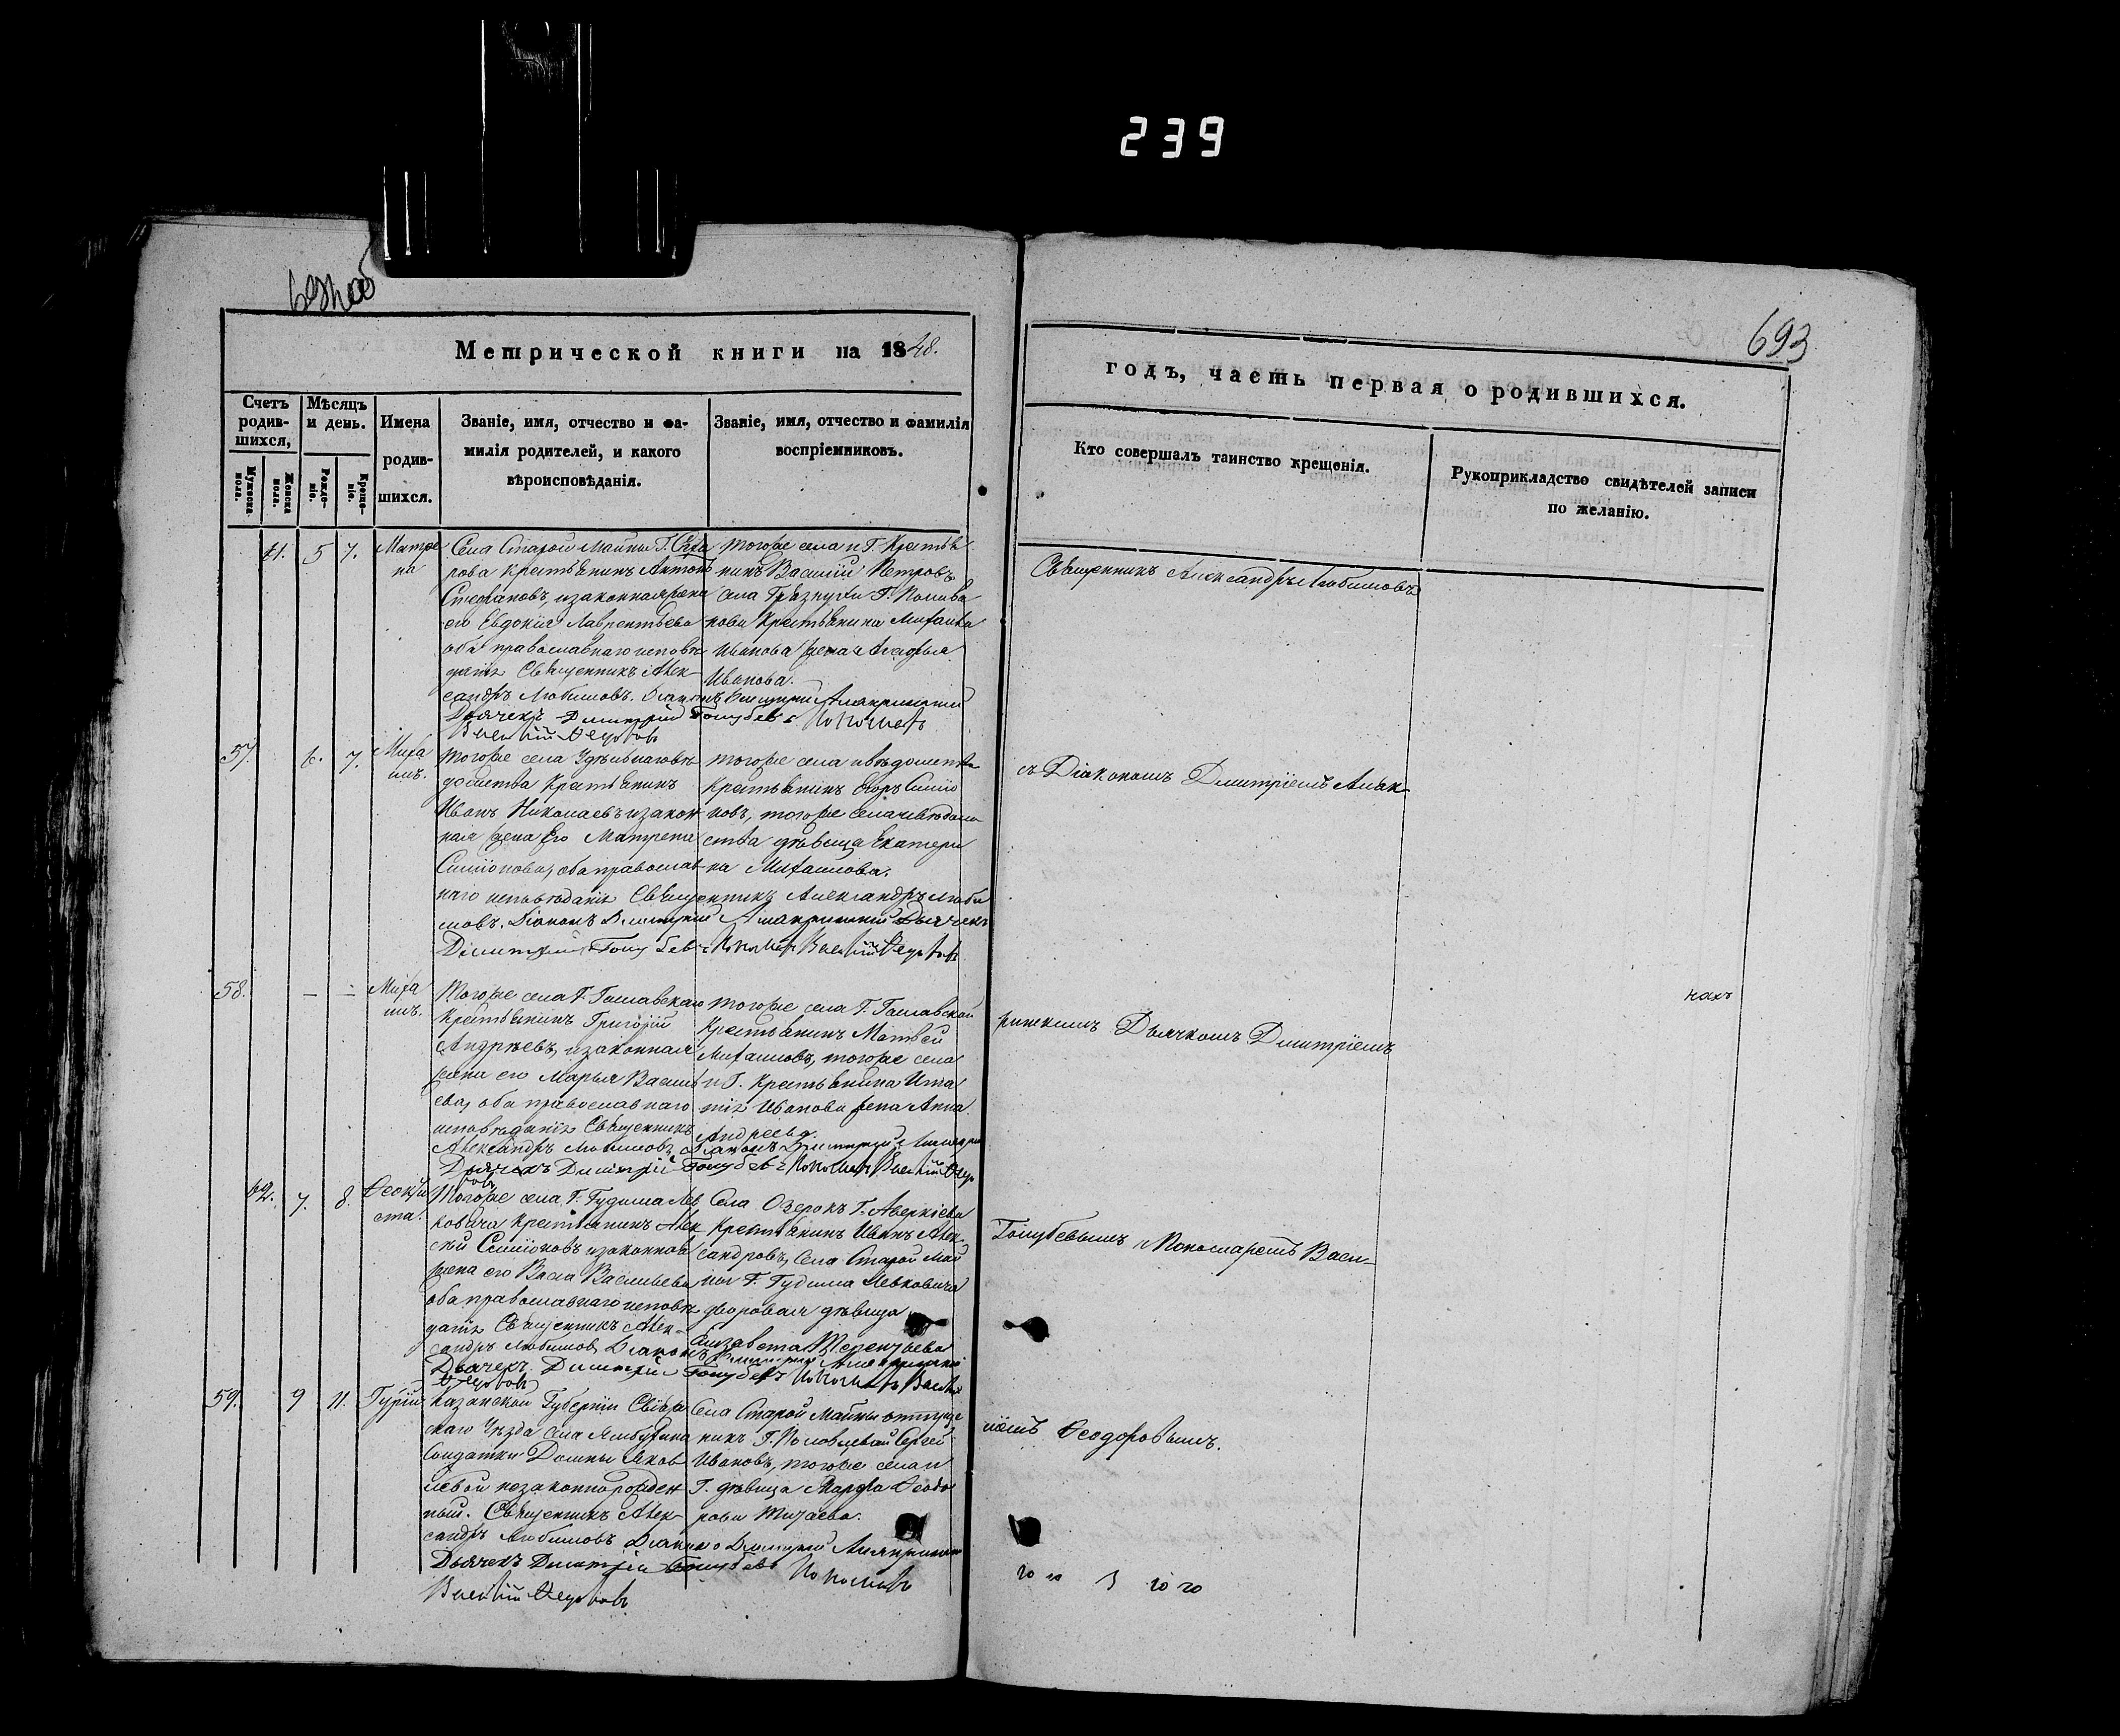 239
693
Метрической книги на 1848.
годъ, часть первая о родившихся.
Счетъ родившихся,
Мужеска пола.
Женска пола.
Мѣсяцъ и день.
Рожденіе.
Крещеніе.
Имена родившихся.
Званіе, имя, отчество и фамилія родителей, и какого вѣроисповѣданія.
Званіе, имя, отчество и фамилія воспріемниковъ.
Кто совершалъ таинство крещенія.
Рукоприкладство свидѣтелей записи по желанію.
61. 5 7. Матре
на
Села Старой Майны Г.
рова Крестьянинъ Антонъ
Стефановъ, и законная жена
его Евдокия Лаврентьева
оба православнаго исповѣ
данія Священникъ Алек-
сандръ Любимовъ. Діаконъ Дмитрий
Дьячекъ Димитрий Голубевъ Пономарь
Василій Ѳедоровъ
тогоже села и Г. Крестья
нинъ Василій Петровъ
села Грязнухи Г. Полива
нова Крестьянина Михаила
Иванова жена Агафья
Иванова.
57. 6. 7. Миха
илъ.
Тогоже села Удѣльнаго вѣ
домства Крестьянинъ
Иванъ Николаевъ и закон
ная жена Его Матрена
Симионова, оба православ
наго исповѣданія Священникъ Александръ Люби
мовъ. Діаконъ Дмитрий Дьячекъ
Димитрий Голубевъ Пономарь Василій Ѳедоровъ
тогоже села и вѣдомства
Крестьянинъ Ѳедоръ Симио
новъ, тогоже села и вѣдом
ства дѣвица Екатери
на Михаилова.
58. — — Миха
илъ.
Тогоже села Г.
Крестьянинъ Григорій
Андреевъ, и законная
жена его Марья Василь
ева, оба православнаго
исповѣданія Священникъ
Александръ Любимовъ, Діаконъ Дмитрий
Дьячекъ Димитрій Голубевъ Пономарь Василій Ѳедо
ровъ
тогоже села Г.
Крестьянинъ Матвей
Михаиловъ, тогоже села
и Г. Крестьянина Игна
тія Иванова жена Анна
Андреева.
62. 7. 8. Ѳеокти
ста.
Тогоже села Г. Гудима Лев
ковича Крестьянинъ Алек
сѣй Симионовъ и законная
жена его Васса Васильева
оба православнаго исповѣ
данія Священникъ Алек-
сандръ Любимовъ Діаконъ Дмитрий
Дьячекъ Димитрій Голубевъ Пономарь Василій
Ѳедоровъ
Села Озерокъ Г. Аверкіева
Крестьянинъ Иванъ Алек-
сандровъ, Села Старой Май
ны Г. Гудима Левковича
дворовая дѣвица
Елизавета Терентьева
59. 9 11. Гурій
Казанской Губерніи Свіяж
скаго Уезда села
Солдатки Домны Яков
левой незаконнорожден
ный. Священникъ Алек-
сандръ Любимовъ Діаконъ Дмитрий
Дьячекъ Димитрій Голубевъ Пономарь
Василій Ѳедоровъ
Села Старой Майны отпуще
никъ Г. Сергей
Ивановъ, тогоже села и
Г. дѣвица Марфа Ѳеодо
рова
Священникъ Александръ Любимовъ
съ Діакономъ Дмитріемъ Алак-
ринскимъ Дьячкомъ Дмитріемъ
Голубевымъ и Пономаремъ Васи-
ліемъ Ѳеодоровымъ.